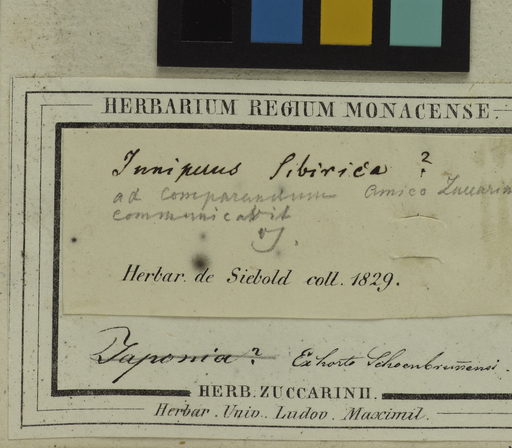 HERBARIUM REGIUM MONACENSE.
Juniperus Sibirica ?
ad comparandum Amico Zuccarin
communicavit
Herbar. de Siebold coll. 1829.
Japonia ? Ex horto Schoenbrunnensi.
HERB. ZUCCARINII.
Herbar. Univ. Ludov. Maximil.